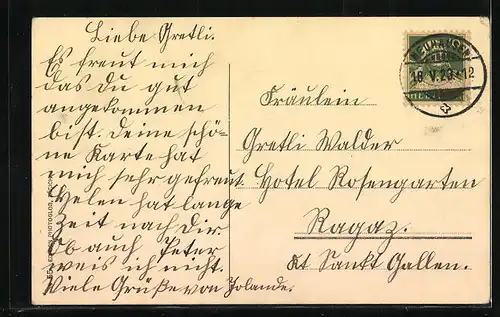 Liebe Gretli.
Es freut mich
das du gut
angekommen
bist. Deine schö-
ne Karte hat
mich sehr gefreut.
Helen hat lange
Zeit nach dir
Ob auch Peter
weis ich nicht.
Viele Grüße von Jolande.
Fräulein
Gretli Walder
Hotel Rosengarten
Ragaz.
Kt Sankt Gallen.
NEUHAUSEN
18.V.23.-12